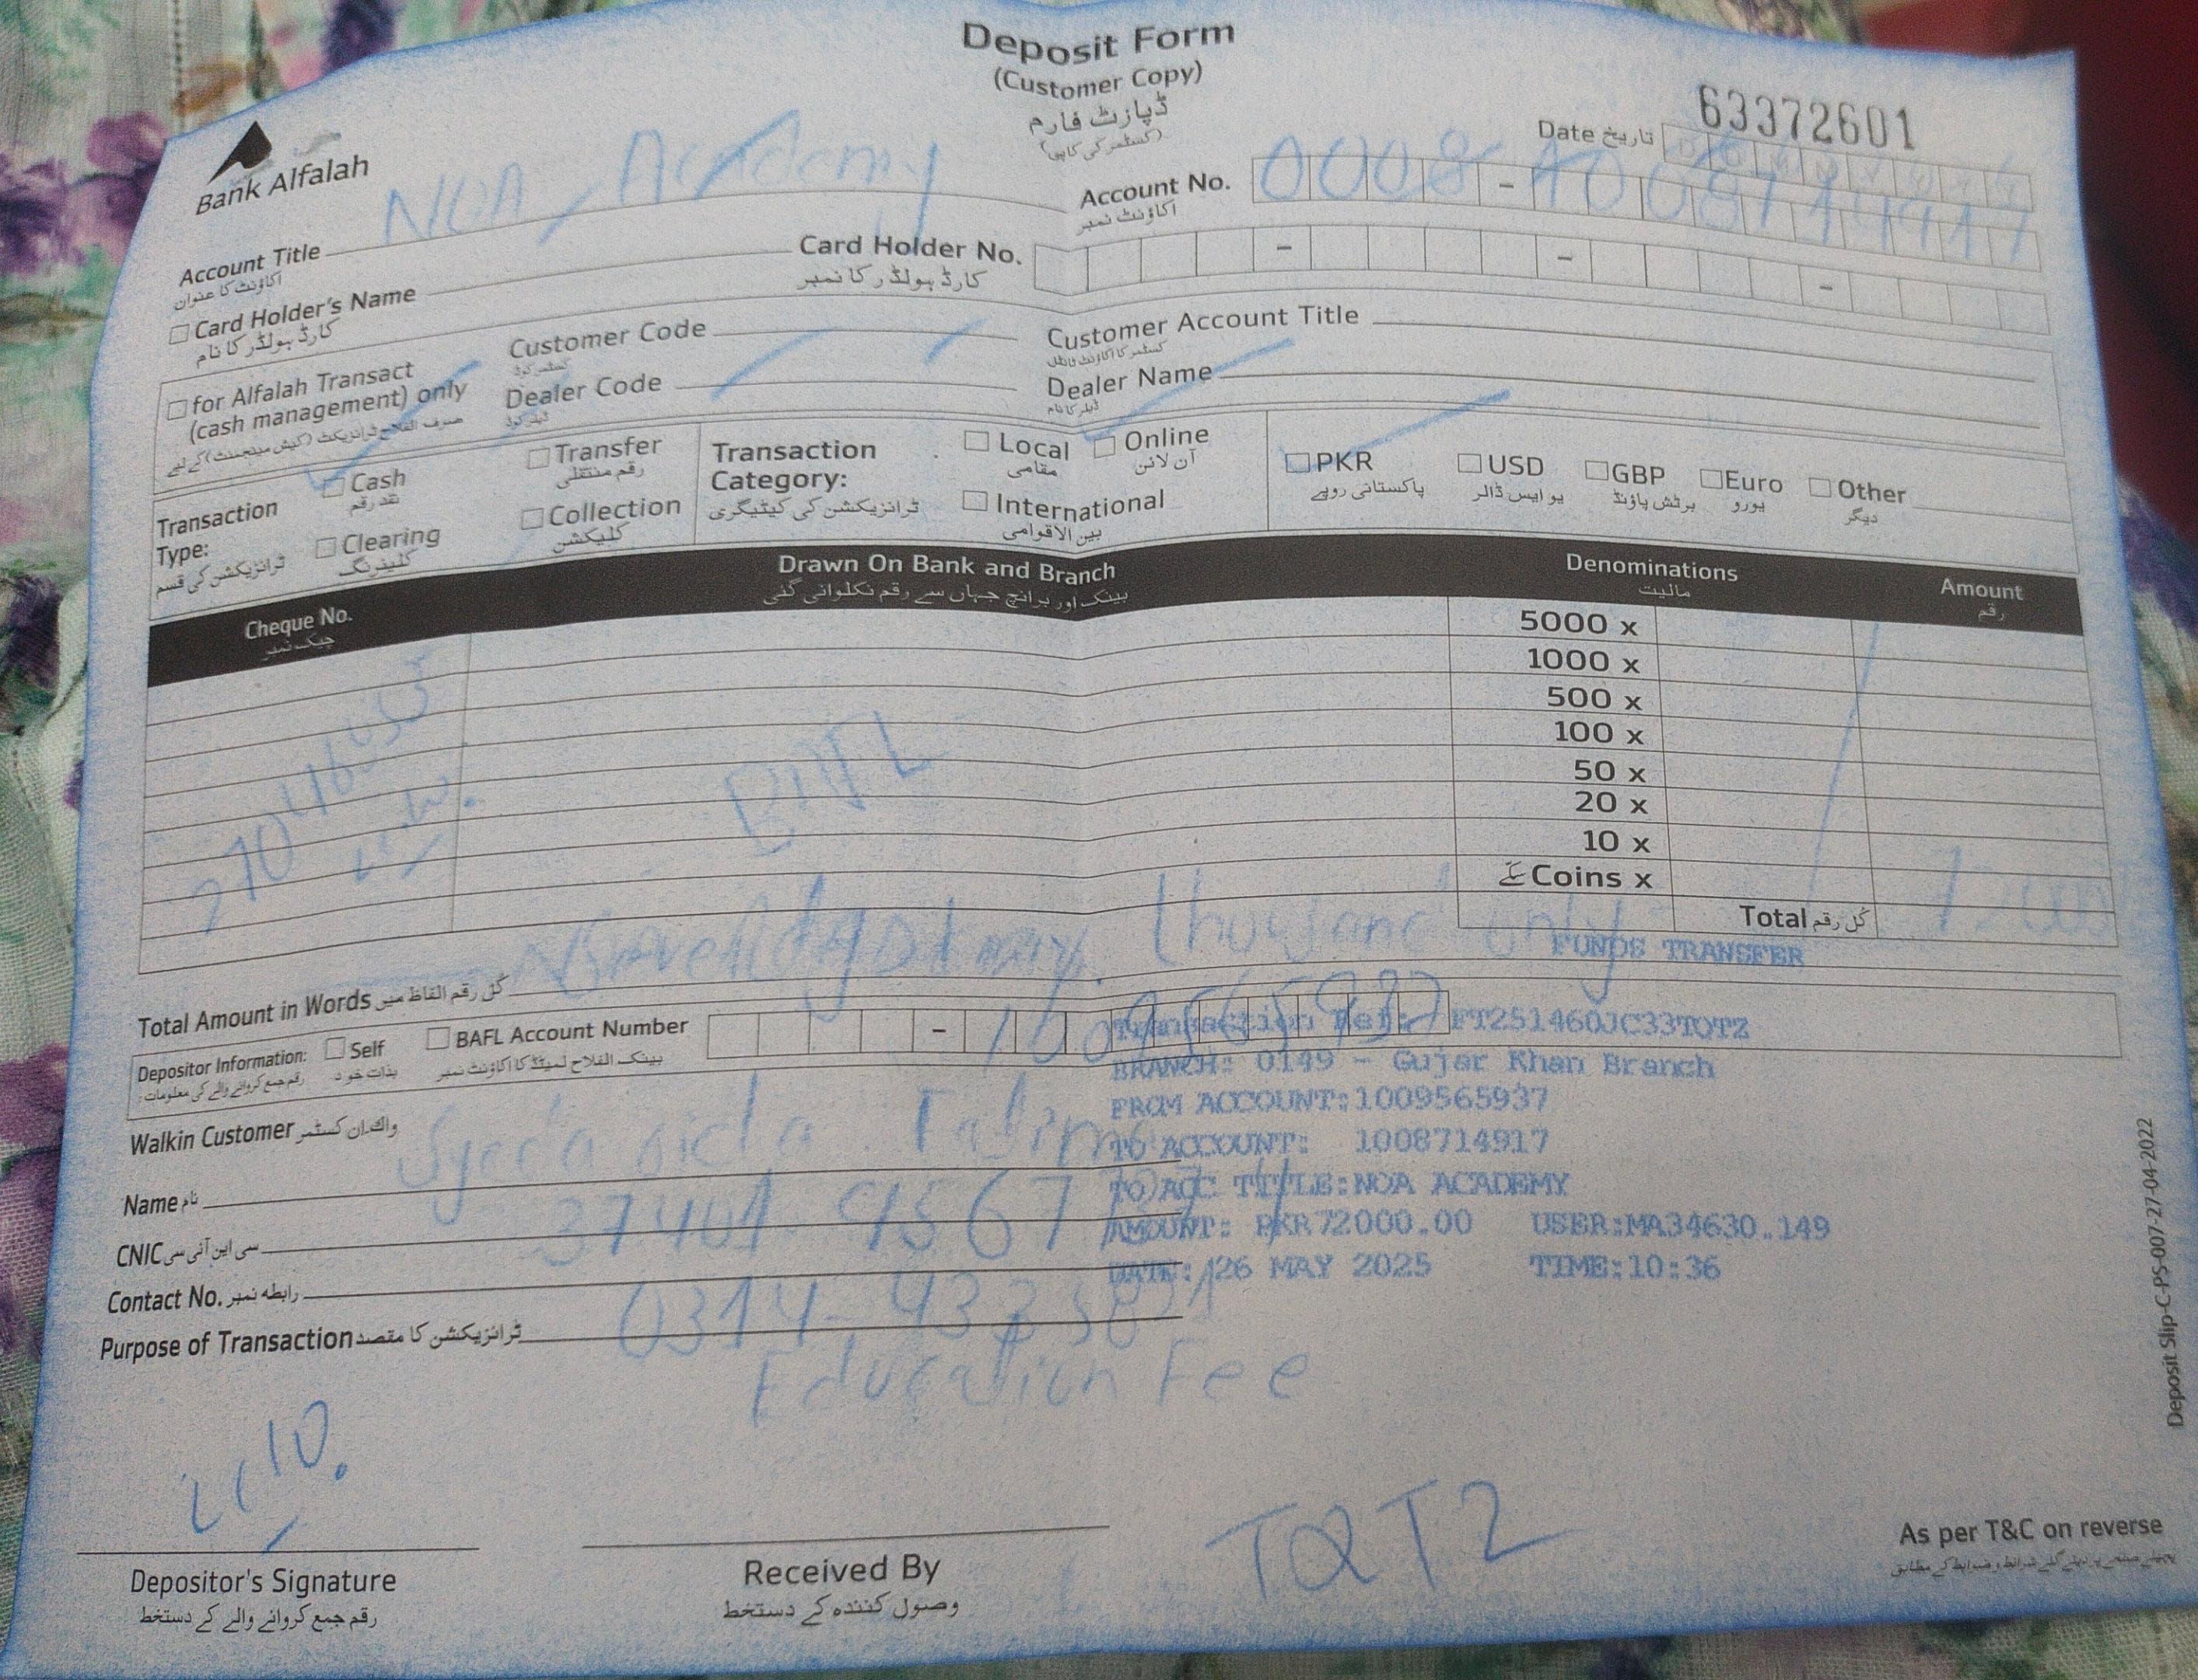 Deposit Form
(Customer Copy)
ڈپازٹ فارم
(کسٹمر کی کاپی)
63372601
Bank Alfalah
Date تاریخ
Account Title NOA Academy
اکاؤنٹ کا عنوان
Account No. 0008 - 1008714917
اکاؤنٹ نمبر
Card Holder's Name
کارڈ ہولڈر کا نام
Card Holder No.
کارڈ ہولڈر کا نمبر
for Alfalah Transact
(cash management) only
صرف الفلاح ٹرانزیکٹ (کیش مینجمنٹ) کے لیے
Customer Code
کسٹمر کوڈ
Customer Account Title
کسٹمر کا اکاؤنٹ ٹائٹل
Dealer Code
ڈیلر کوڈ
Dealer Name
ڈیلر کا نام
Transaction
Type:
ٹرانزیکشن کی قسم
Cash
نقد رقم
Transfer
رقم منتقلی
Clearing
کلیئرنگ
Collection
کلیکشن
Transaction
Category:
ٹرانزیکشن کی کیٹیگری
Local
مقامی
Online
آن لائن
International
بین الاقوامی
PKR
پاکستانی روپے
USD
یو ایس ڈالر
GBP
برٹش پاؤنڈ
Euro
یورو
Other
دیگر
Cheque No.
چیک نمبر
Drawn On Bank and Branch
بینک اور برانچ جہاں سے رقم نکلوائی گئی
Denominations
مالیت
Amount
رقم
5000 x
1000 x
500 x
100 x
50 x
20 x
10 x
سکے Coins x
Total کل رقم
FUNDS TRANSFER
Total Amount in Words کل رقم الفاظ میں
only
Depositor Information:
رقم جمع کروانے والے کی معلومات
Self
بذات خود
BAFL Account Number 1009565937
بینک الفلاح لمیٹڈ کا اکاؤنٹ نمبر
Transaction Ref: FT251460JC33TQT2
BRANCH: 0149 - Gujar Khan Branch
FROM ACCOUNT:1009565937
TO ACCOUNT: 1008714917
TO ACC TITLE:NOA ACADEMY
AMOUNT: PKR72000.00 USER:MA34630.149
DATE: 26 MAY 2025 TIME:10:36
Walkin Customer واک ان کسٹمر
Name نام Syeda
CNIC سی این آئی سی
Contact No. رابطہ نمبر
Purpose of Transaction ٹرانزیکشن کا مقصد
Education Fee
Depositor's Signature
رقم جمع کروانے والے کے دستخط
Received By
وصول کنندہ کے دستخط
TQT2
As per T&C on reverse
Deposit Slip-C-PS-007-27-04-2022